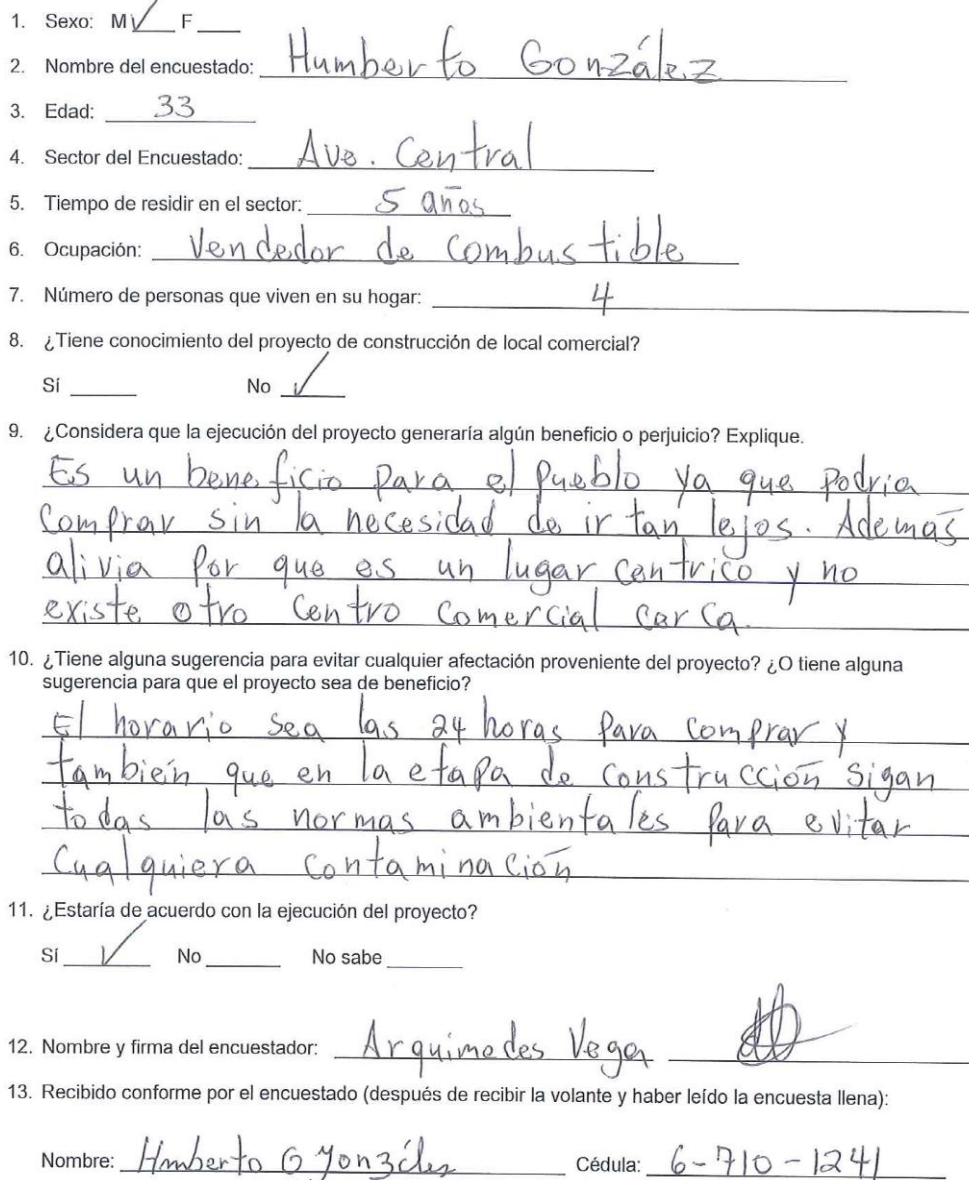 1. Sexo: M ✓ F ___
2. Nombre del encuestado: Humberto González
3. Edad: 33
4. Sector del Encuestado: Ave. Central
5. Tiempo de residir en el sector: 5 años
6. Ocupación: Vendedor de Combustible
7. Número de personas que viven en su hogar: 4
8. ¿Tiene conocimiento del proyecto de construcción de local comercial?
Sí ___ No ✓
9. ¿Considera que la ejecución del proyecto generaría algún beneficio o perjuicio? Explique.
Es un beneficio para el Pueblo ya que Podria
Comprar sin la necesidad de ir tan lejos. Además
alivia Por que es un lugar centrico y no
existe otro Centro Comercial carca.
10. ¿Tiene alguna sugerencia para evitar cualquier afectación proveniente del proyecto? ¿O tiene alguna
sugerencia para que el proyecto sea de beneficio?
El horario sea las 24 horas Para comprar y
también que en la etapa de construcción sigan
todas las normas ambientales Para evitar
Cualquiera contaminación
11. ¿Estaría de acuerdo con la ejecución del proyecto?
Sí ✓ No ___ No sabe ___
12. Nombre y firma del encuestador: Arquimedes Vega
13. Recibido conforme por el encuestado (después de recibir la volante y haber leído la encuesta llena):
Nombre: Hmberto G Cédula: 6-710-1241